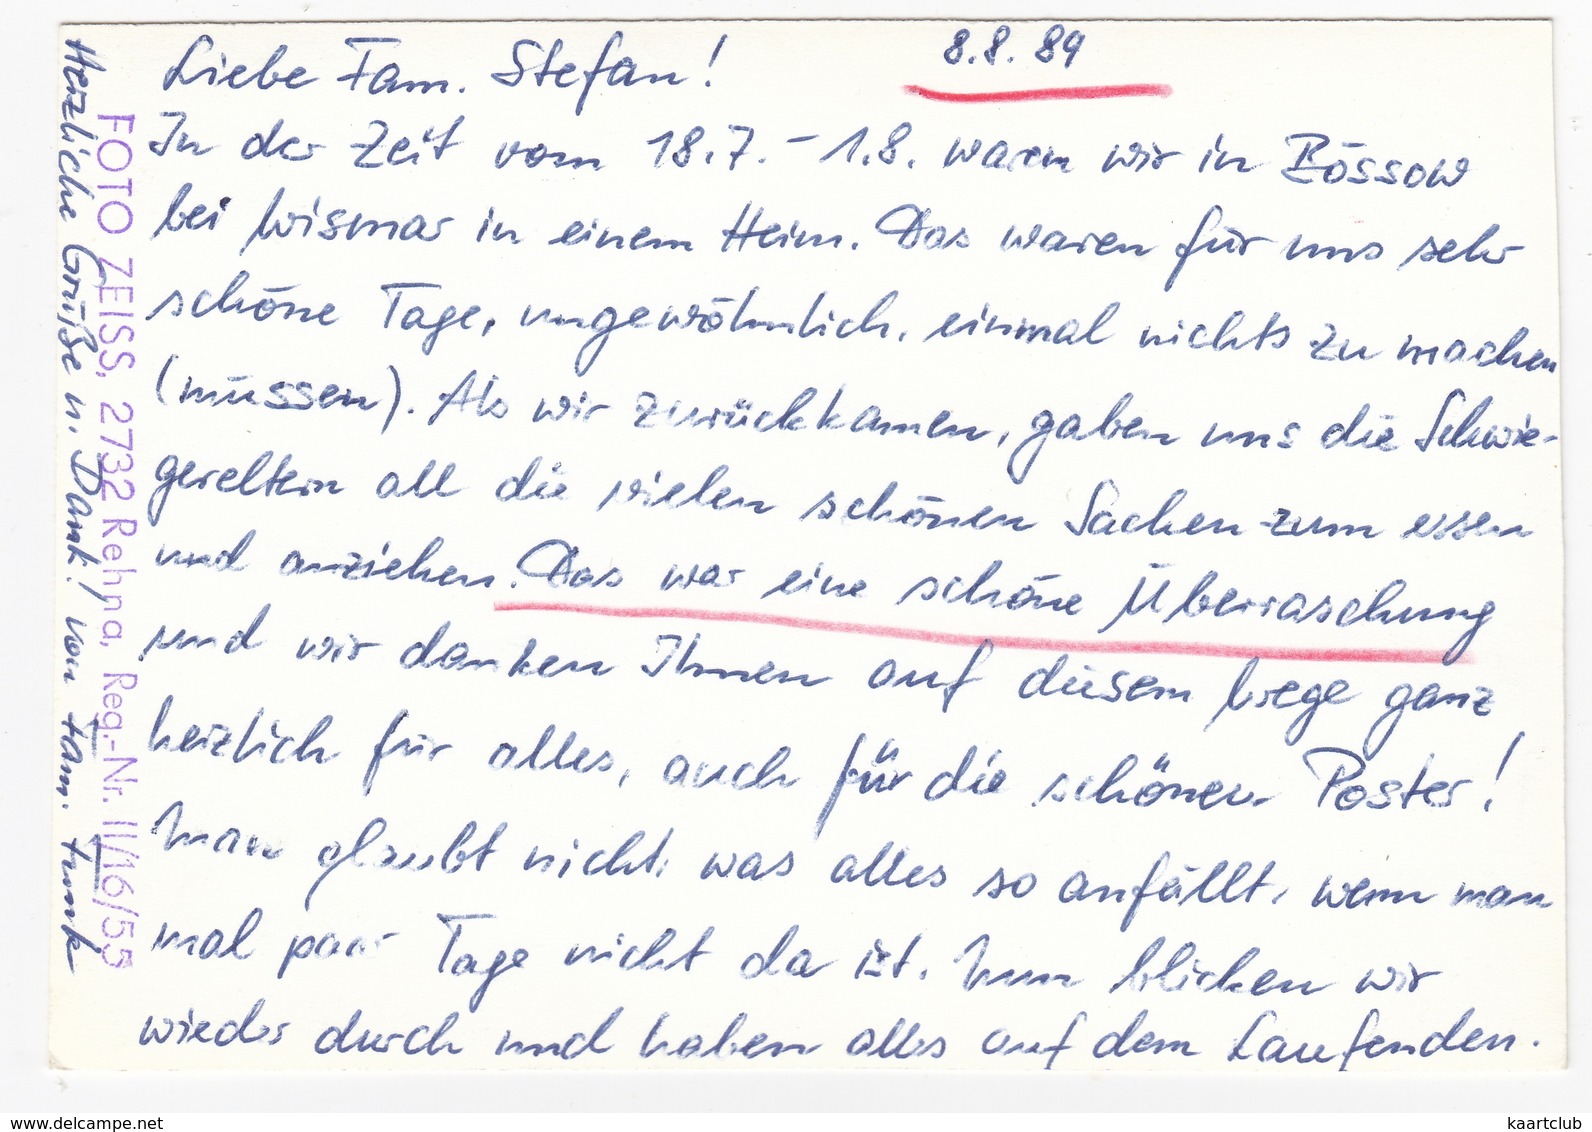 8.8.89
Liebe Fam. Stefan!
In der Zeit vom 18.7. - 1.8. waren wir in Bössow
bei Wismar in einem Heim. Das waren für uns sehr
schöne Tage, ungewöhnlich, einmal nichts zu machen
(müssen). Als wir zurückkamen, gaben uns die Schwie-
gereltern all die vielen schönen Sachen zum essen
und anziehen. Das war eine schöne Überraschung
und wir danken Ihnen auf diesem Wege ganz
herzlich für alles, auch für die schönen Poster!
Man glaubt nicht, was alles so anfällt, wenn man
mal paar Tage nicht da ist. Nun blicken wir
wieder durch und haben alles auf dem Laufenden.
Herzliche Grüße u. Dank! von Fam. Funk
FOTO ZEISS, 2732 Rehna, Reg.-Nr. II/16/55
www.delcampe.net
kaartclub